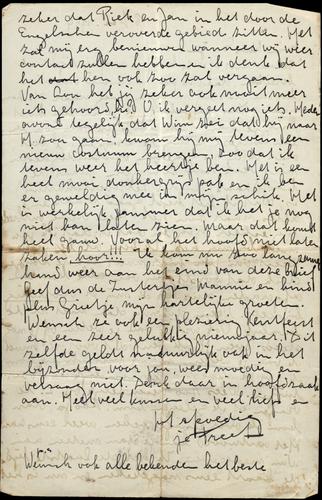 zeker dat Riek en Jan in het door de
Engelschen veroverde gebied zitten. Het
zal mij erg benieuwen wanneer wij weer
contact zullen hebben en ik denk dat
het dat hen ook zoo zal vergaan.
Van Lou heb je zeker ook nooit meer
iets gehoord hè? O, ik vergeet nog iets.
avond tegelijk dat Wim zei dat hij naar
H. zou gaan, kwam hij mij tevens een
nieuw costuum brengen, zoo dat ik
tevens weer het heertje ben. Het is een
heel mooi donkergrijs pak en ik ben
er geweldig mee in mijn schik. Het
is werkelijk jammer dat ik het je nog
niet kan laten zien. Maar dat komt
heel gauw. Vooral het hoofd niet laten
zaken hoor!! Ik kom nu zoo lang
hand weer aan het eind van deze brief
geef dus de Zustertjes Mannie en kind
plus Grietje mijn hartelijke groeten
Wensch ze ook een plezierig Kerstfeest
en een zeer gelukkig nieuwjaar. Dit
zelfde geldt natuurlijk ook in het
bijzonder voor jou, wees moedig en
versaag niet. Denk daar in hoofdzaak
aan. Heel veel kussen en veel liefs en
tot spoedig
je
Wensch ook alle bekenden het beste